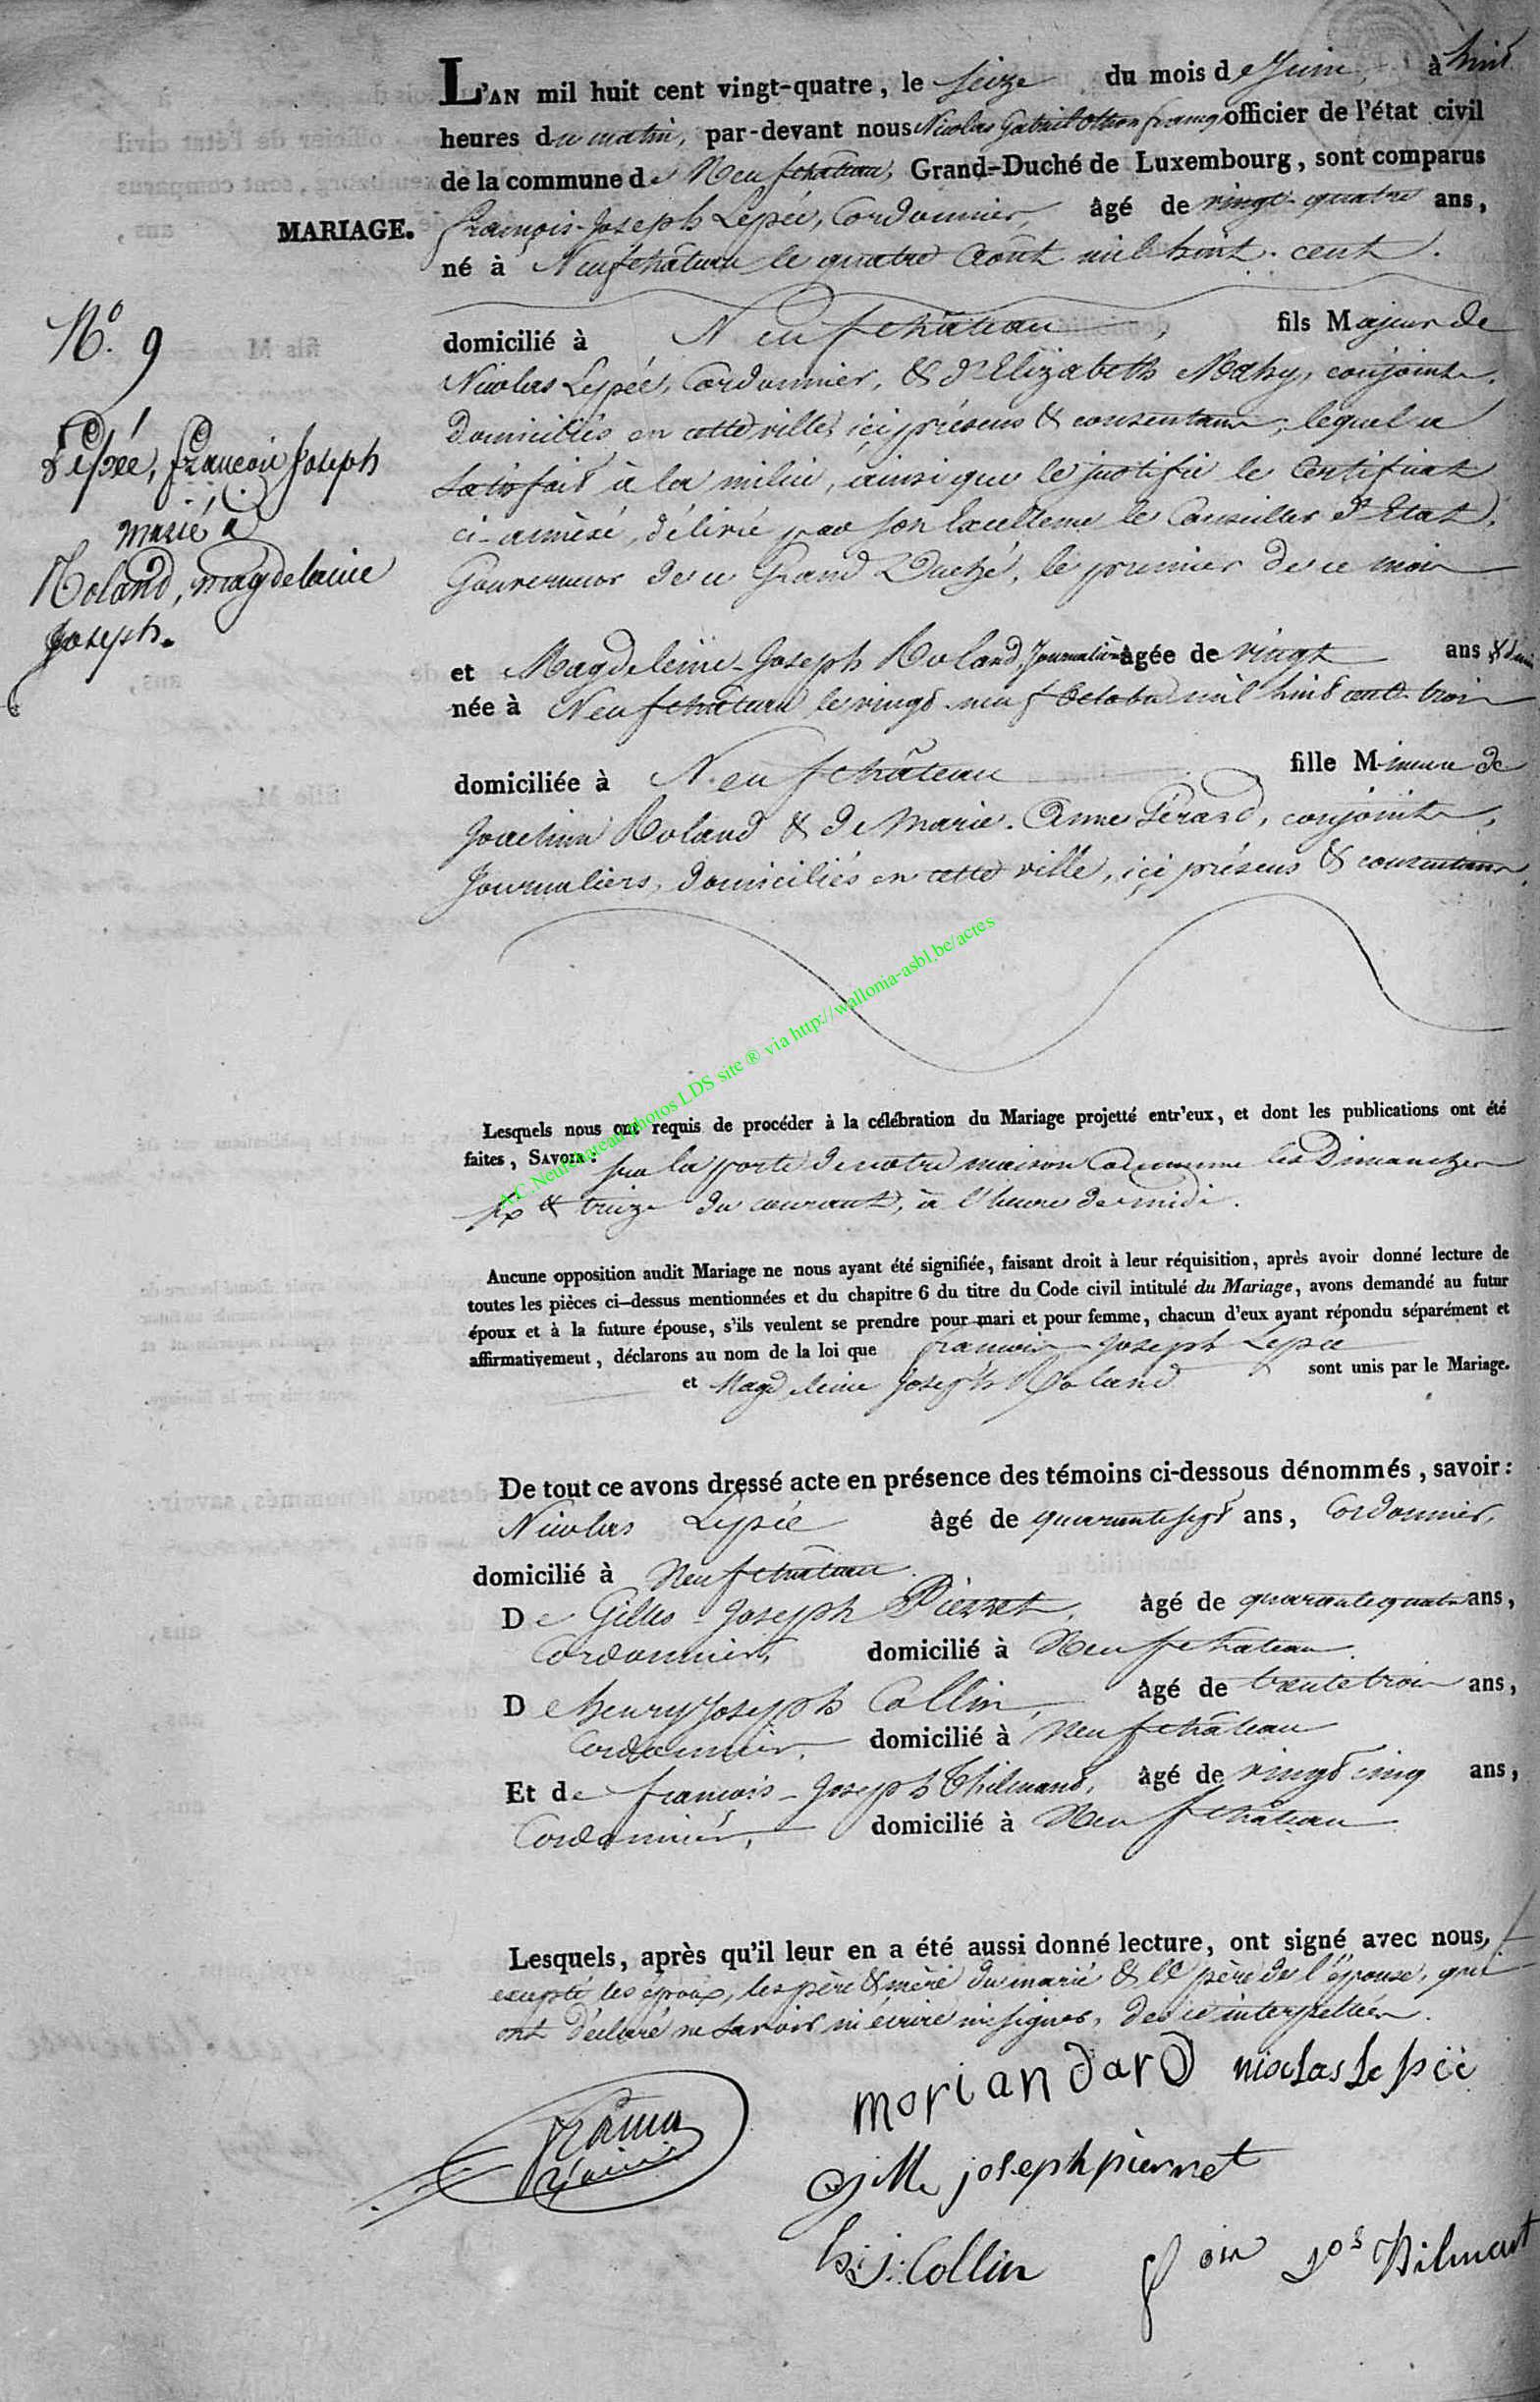 L'AN mil huit cent vingt-quatre, le Seize du mois de Juin, à huit
heures du matin, par-devant nous Nicolas Gabriel officier de l'état civil
de la commune de Neufchateau, Grand-Duché de Luxembourg, sont comparus
MARIAGE.
François-Joseph Lepée, Cordonnier, âgé de vingt-quatre ans,
né à Neufchâteau le quatre Août mil huit-cent.
domicilié à Neufchâteau, fils Majeur de
Nicolas Lepée, Cordonnier, & d'Elizabeth Mahy, conjoints,
domiciliés en cette ville, ici présens & consentans, lequel a
satisfait à la milice, ainsi que le justifie le Certificat
ci-annexé, délivré par Son Excellence le Conseiller d'Etat,
Gouverneur de ce Grand Duché, le premier de ce mois
N.º 9
Lepée, françois Joseph
marié à
Roland, magdelaine
Joseph.
et Magdeleine-Joseph Roland, Journalière âgée de vingt ans
née à Neufchâteau le vingt-neuf Octobre mil huit cent-trois
domiciliée à Neufchâteau fille Mineure de
Joachim Roland & de Marie-Anne Gérard, conjoints,
Journaliers, domiciliés en cette ville, ici présens & consentans,
A.C. Neufchateau photos LDS site ® via http://wallonia-asbl.be/actes
Lesquels nous ont requis de procéder à la célébration du Mariage projetté entr'eux, et dont les publications ont été
faites, SAVOIR: sur la porte de notre maison Commune les Dimanches
six & treize du courant, à l'heure de midi.
Aucune opposition audit Mariage ne nous ayant été signifiée, faisant droit à leur réquisition, après avoir donné lecture de
toutes les pièces ci-dessus mentionnées et du chapitre 6 du titre du Code civil intitulé du Mariage, avons demandé au futur
époux et à la future épouse, s'ils veulent se prendre pour mari et pour femme, chacun d'eux ayant répondu séparément et
affirmativement, déclarons au nom de la loi que françois-Joseph Lepée
et Magdeleine Joseph Roland sont unis par le Mariage.
De tout ce avons dressé acte en présence des témoins ci-dessous dénommés, savoir:
Nicolas Lepée âgé de quarante sept ans, Cordonnier,
domicilié à Neufchâteau.
De Gilles-Joseph Pierret, âgé de quarante quatre ans,
Cordonnier, domicilié à Neufchateau.
De henry Joseph Collin, âgé de trente trois ans,
Cordonnier, domicilié à Neufchâteau
Et de francois-Joseph Thilmant, âgé de vingt cinq ans,
Cordonnier, domicilié à Neufchâteau
Lesquels, après qu'il leur en a été aussi donné lecture, ont signé avec nous,
excepté les époux, les père & mère du marié & le père de l'épouse, qui
ont déclaré ne savoir ni écrire ni signer, de ce interpellés.
morian darD nicolas Le péé
gille joseph pierret
h: j: Collin
f oin Jos Thilmant